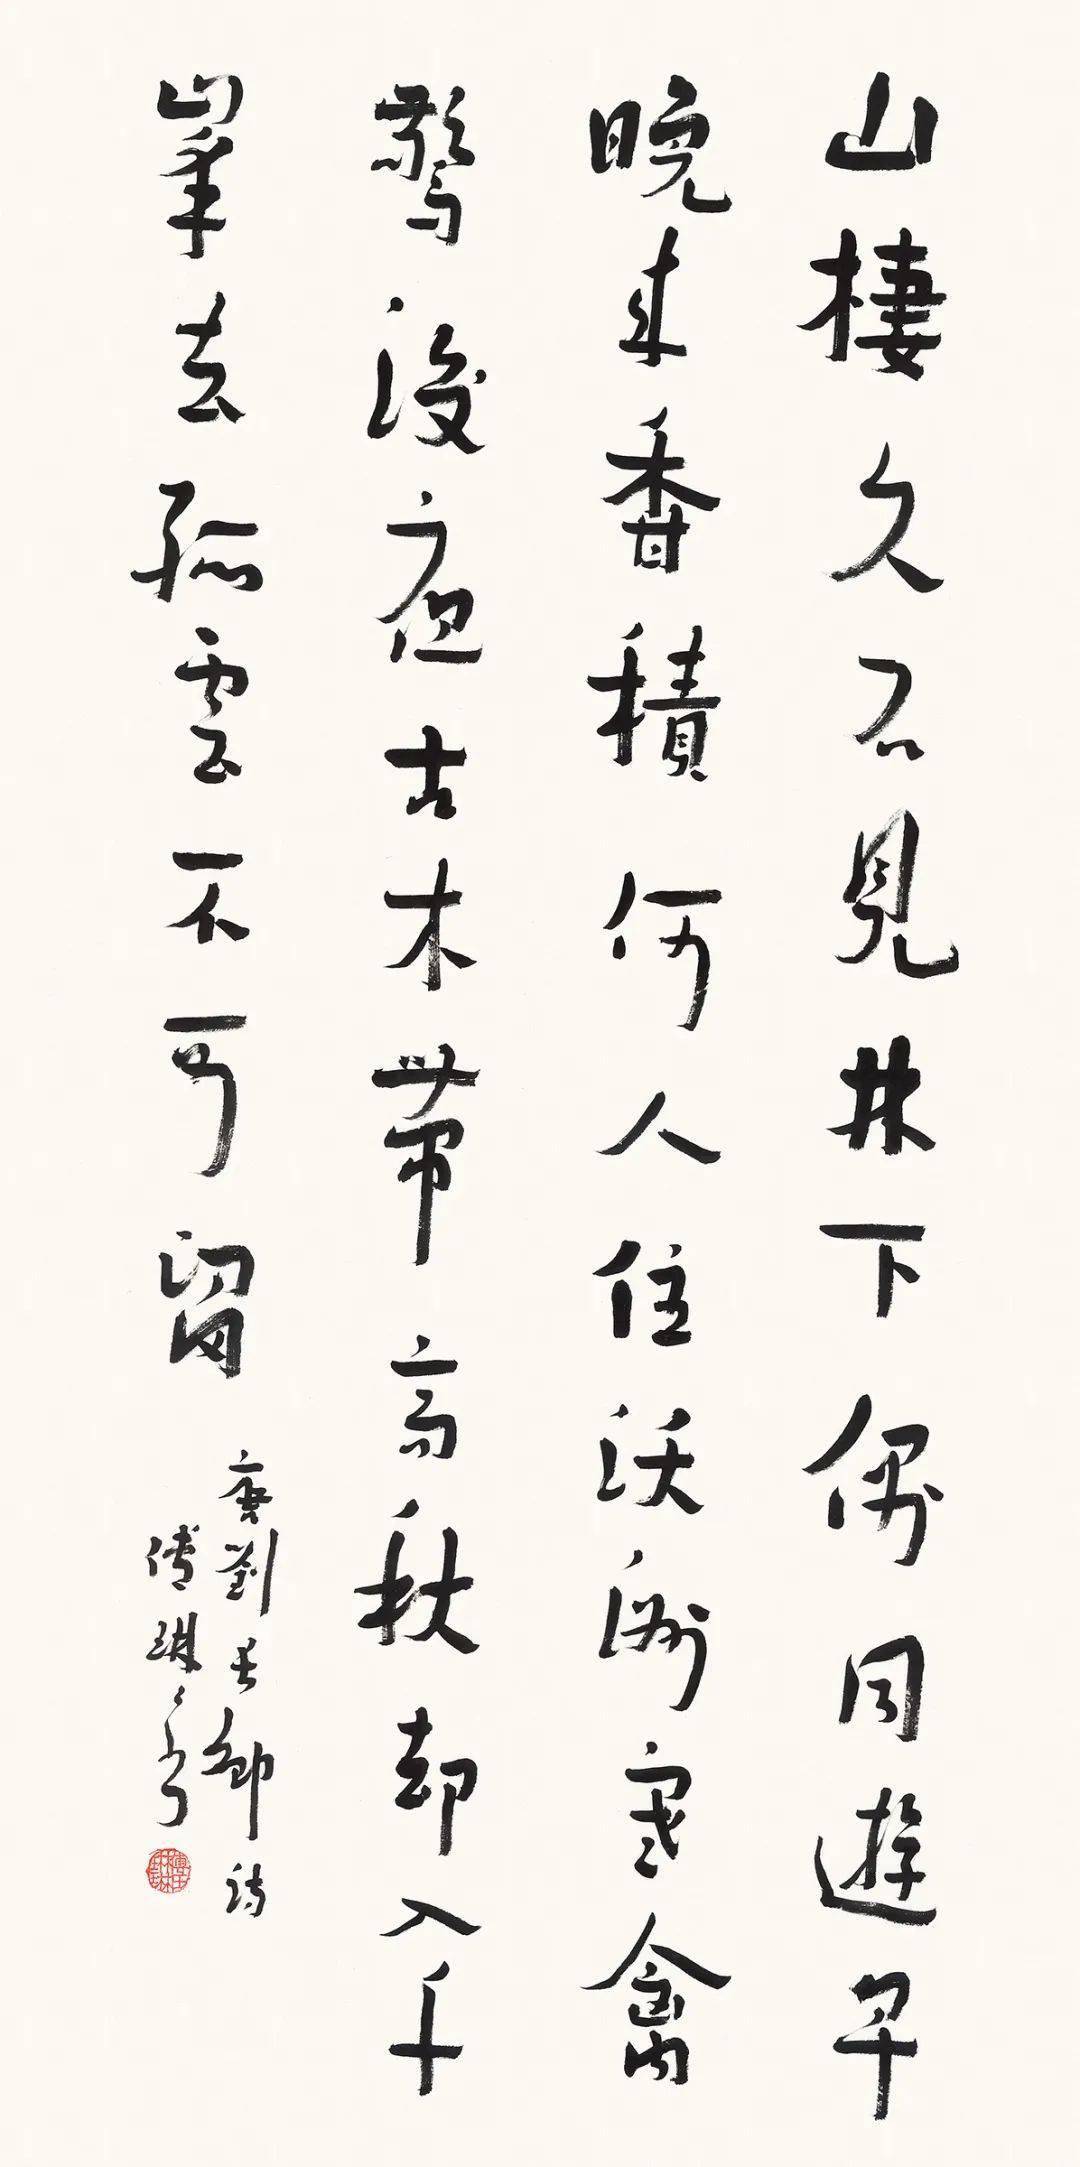 山棲久不見林下偶同遊早
晚来香積何人住沃洲寒禽
驚後夜古木帶高秋却入千
峯去孤雲不可留
唐劉長卿詩
傅琳